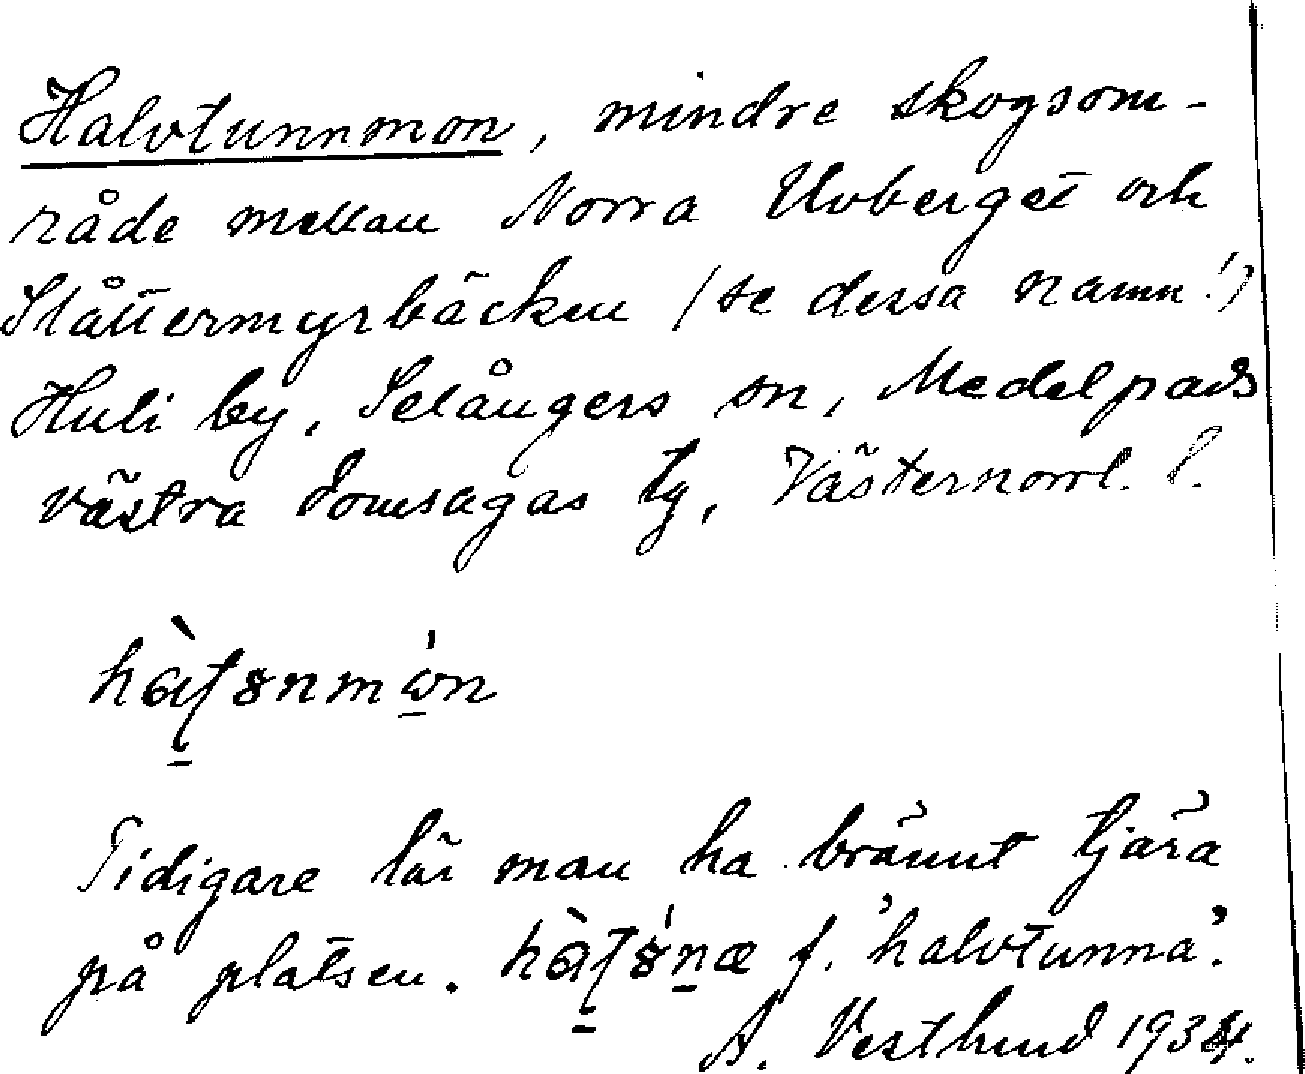 Halvtunnmon, mindre skogsom-
råde mellan Norra Uvberget och
Slåttermyrbäcken (se dessa namn!)
Huli by, Selångers sn, Medelpads
västra domsagas tg, Västernorrl. l.
Tidigare lär man ha bränt tjära
på platsen. f. 'halvtunna'.
A. Vestlund 1934.